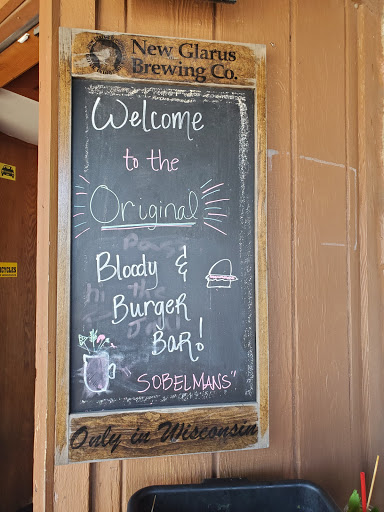 New Glarus
Brewing Co.
Welcome
to the
Original
Bloody &
Burger
BAR!
SOBELMANS"
Only in Wisconsin